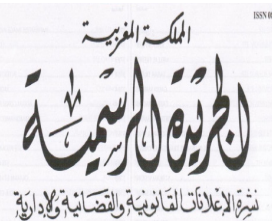 ISSN 0
المملكة المغربية
الجريدة الرسمية
نشرة الإعلانات القانونية والقضائية والإدارية